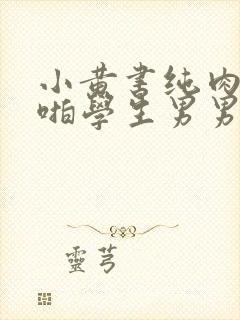 小黄书纯肉
啪學生男男
靈芎